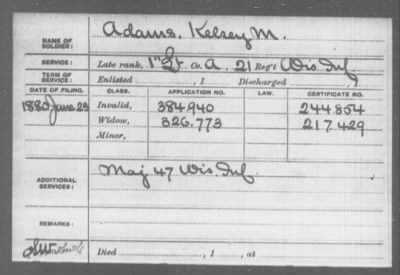 NAME OF SOLDIER: Adams, Kelsey M.
SERVICE: Late rank, 1st Lt Co. A, 21 Reg't Wis. Inf.
TERM OF SERVICE: Enlisted , 1 Discharged , 1
DATE OF FILING. CLASS. APPLICATION NO. LAW. CERTIFICATE NO.
1880 June 23 Invalid, 384.940 244854
Widow, 326.773 217.429
Minor,
ADDITIONAL SERVICES: Maj 47 Wis. Inf.
REMARKS:
Died , 1 , at